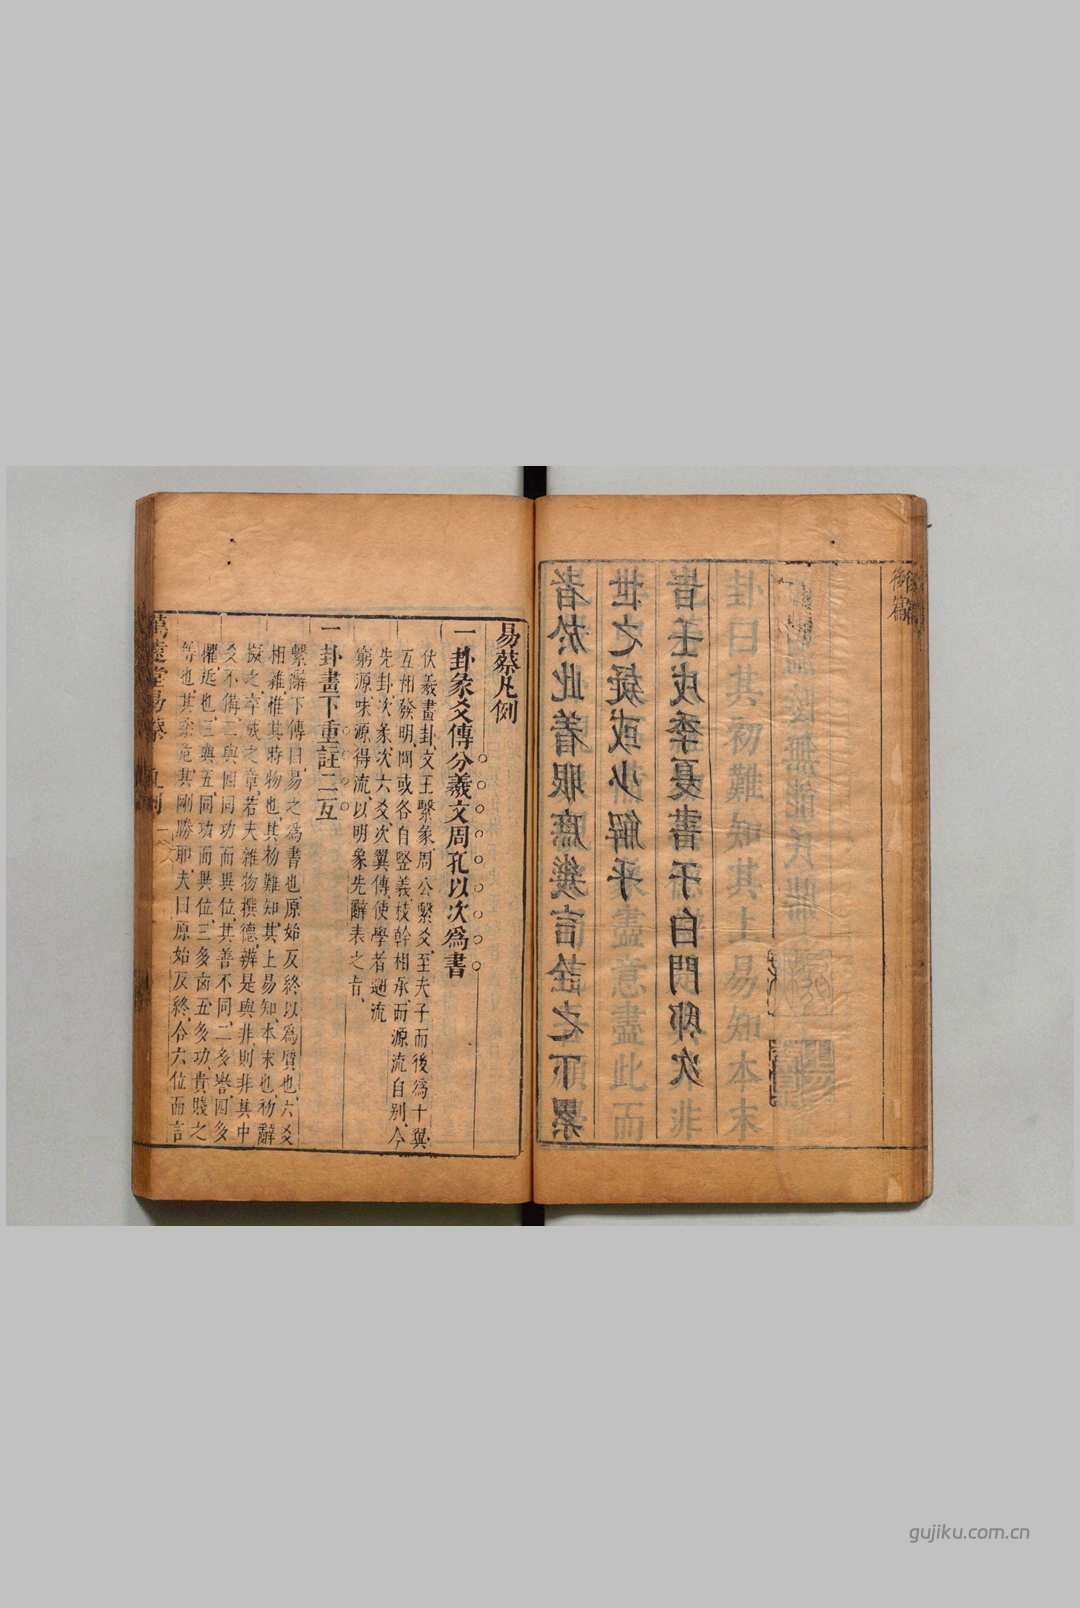 者於此着眼庶幾言詮之下累
世之疑或少解乎
昔壬戌季夏書于白門邸次
易蔡凡例
一卦象爻傳分羲文周孔以次爲書
伏羲畫卦、文王繫彖、周公繫爻、至夫子而後爲十翼、
互相發明、間或各自竪義、枝幹相承、而源流自別、今
先卦、次彖、次六爻、次翼傳、使學者遡流
窮源、味源得流、以明象先辭表之旨、
一卦畫下重註二互
繫辭下傳曰、易之爲書也、原始反終、以爲質也、六爻
相雜、惟其時物也、其初難知、其上易知、本末也、初辭
擬之、卒成之章、若夫雜物撰德、辨是與非、則非其中
爻不備、二與四同功而異位、其善不同、二多譽、四多
懼、近也、三與五、同功而異位、三多凶、五多功、貴賤之
等也、其柔危、其剛勝耶、夫曰原始反終、合六位而言
萬遠堂易蔡 凡例 一
gujiku.com.cn